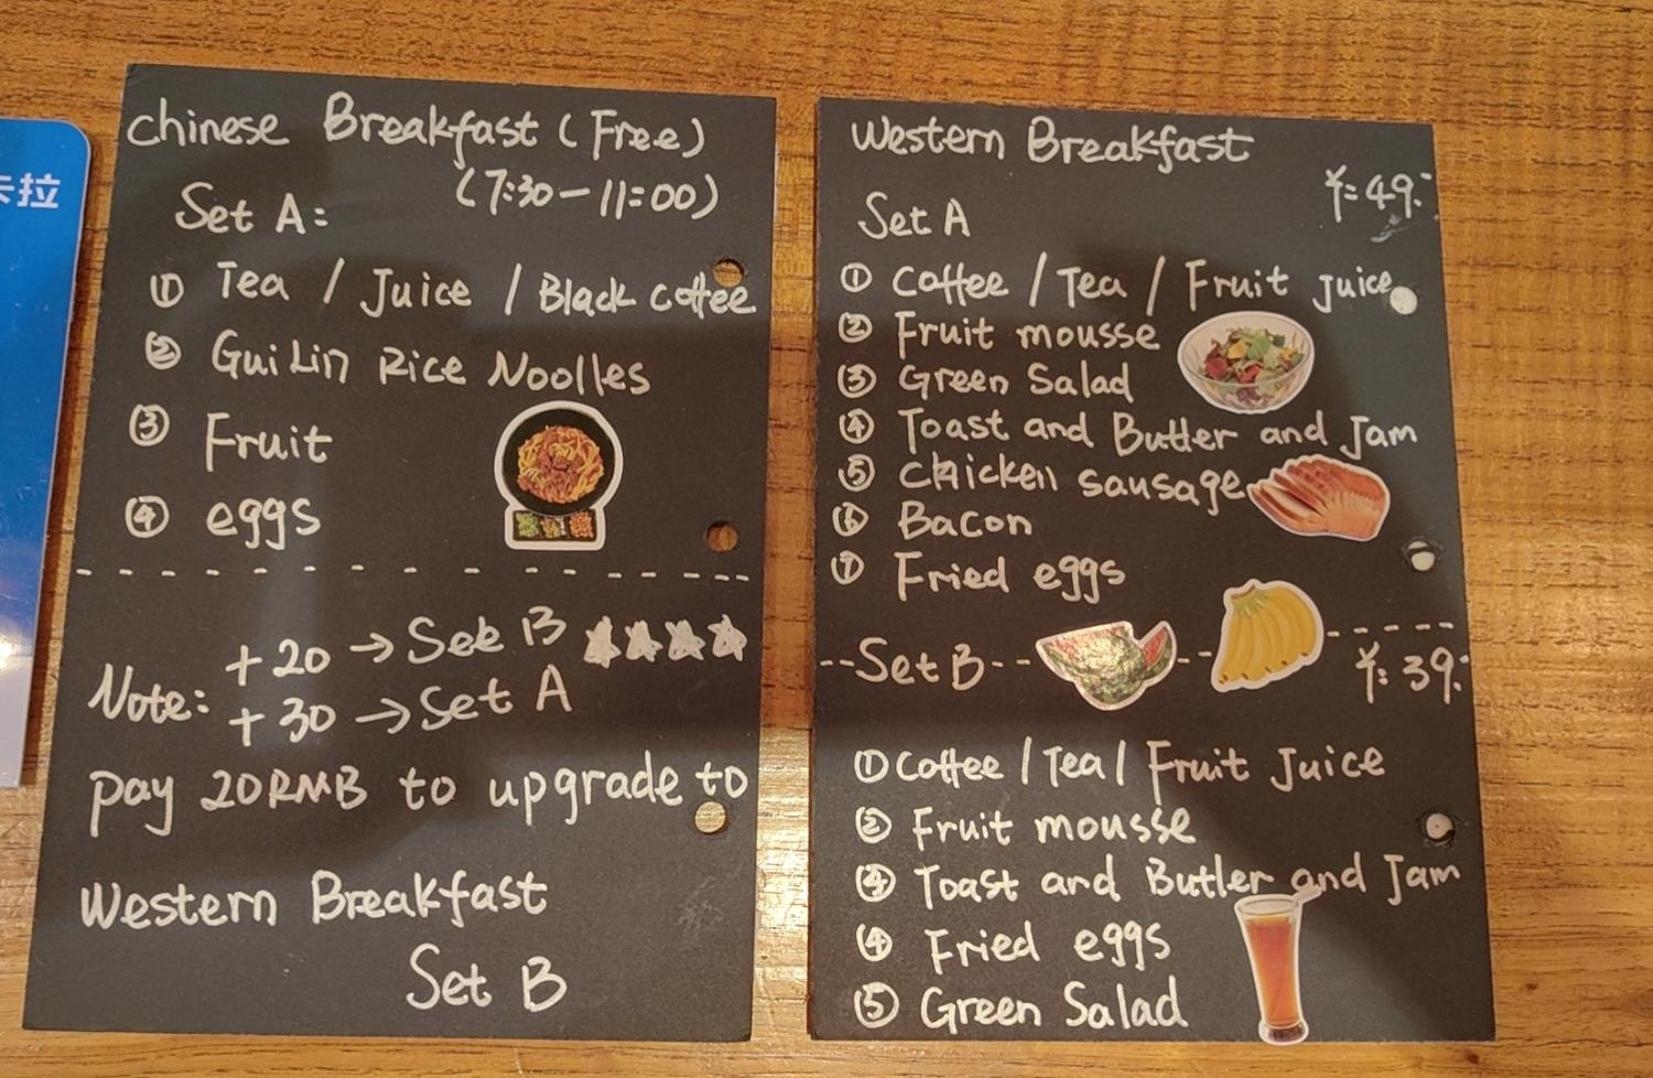 卡拉
Chinese Breakfast (Free)
(7:30-11:00)
Set A:
① Tea / Juice / Black coffee
② GuiLin Rice Noolles
③ Fruit
④ eggs
Note: +20 → Set B
+30 → Set A
pay 20RMB to upgrade to
Western Breakfast
Set B
Western Breakfast
¥: 49.-
Set A
① Coffee / Tea / Fruit juice
② Fruit mousse
③ Green Salad
④ Toast and Butter and Jam
⑤ Chicken sausage
⑥ Bacon
⑦ Fried eggs
--Set B-- ¥: 39.-
① Coffee / Tea / Fruit Juice
② Fruit mousse
④ Toast and Butler and Jam
④ Fried eggs
⑤ Green Salad